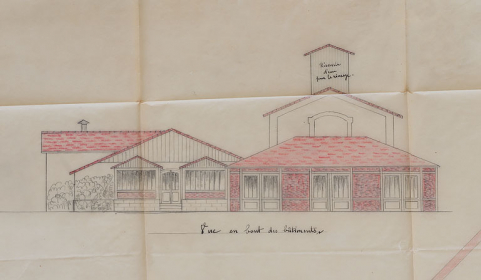 Réservoir
d'eau
pour le rinçage.
Vue en bout des bâtiments.